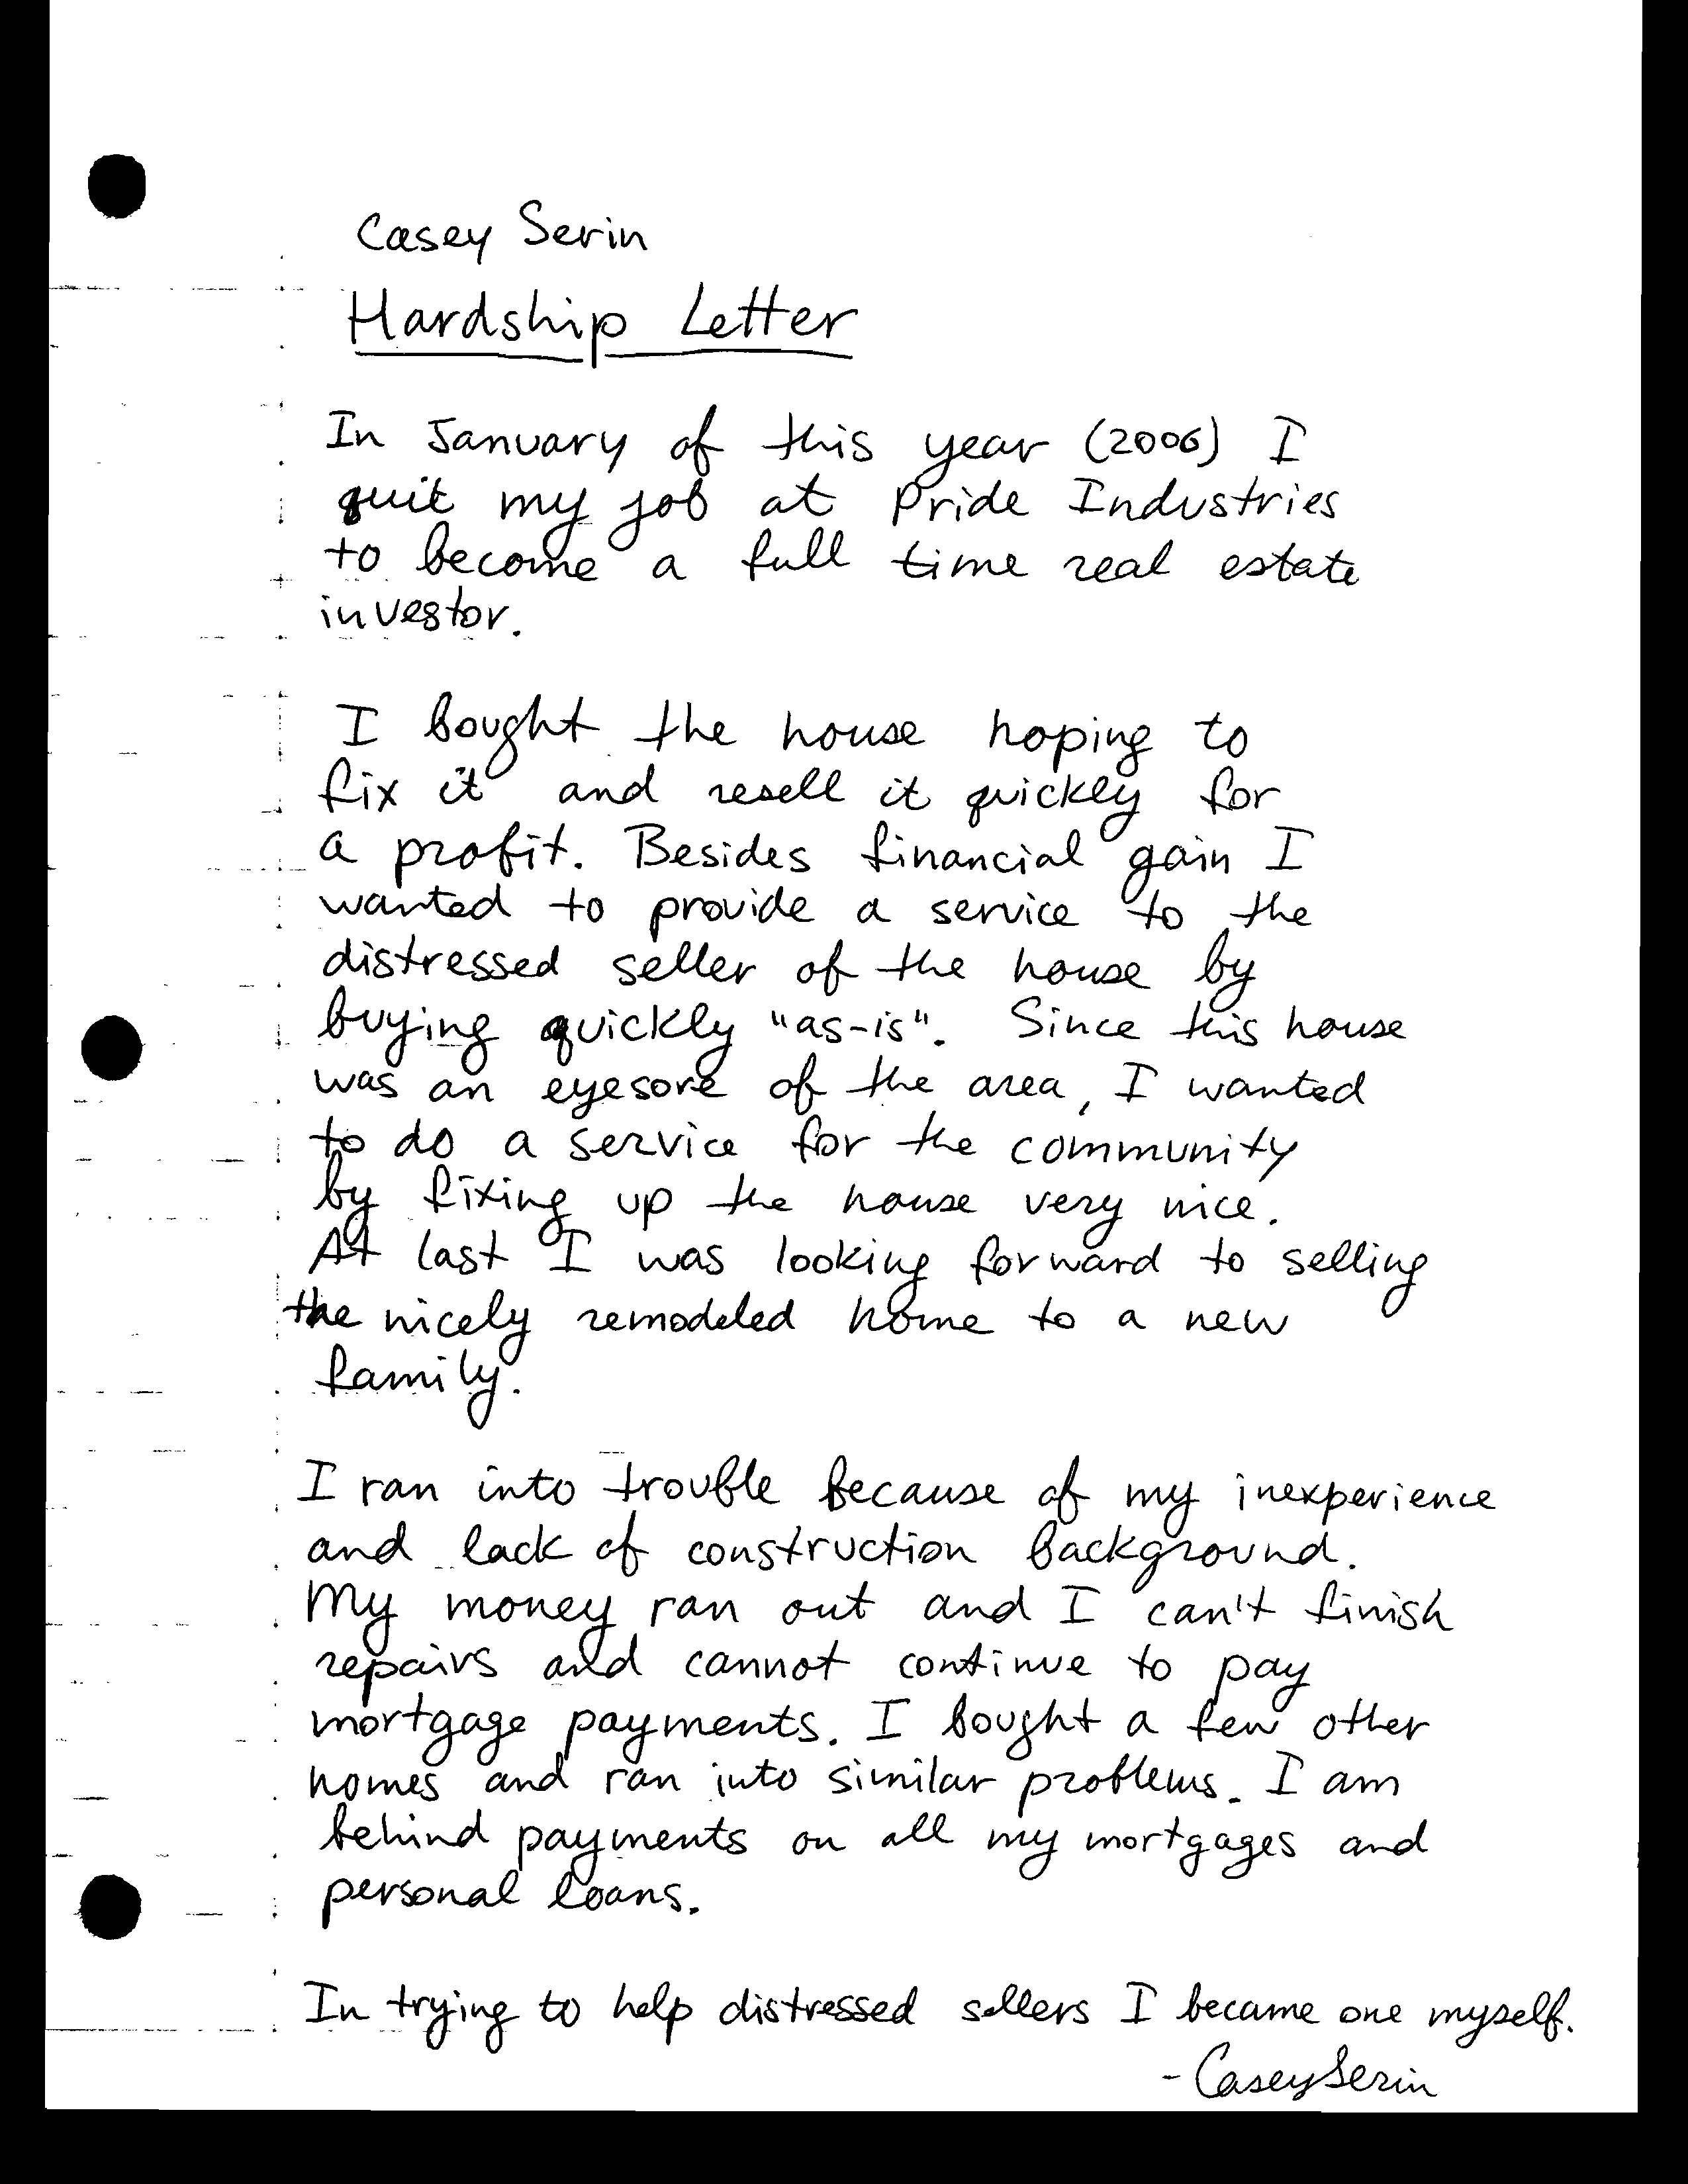 Casey Serin
Hardship Letter
In January of this year (2006) I
quit my job at Pride Industries
to become a full time real estate
investor.
I bought the house hoping to
fix it and resell it quickly for
a profit. Besides financial gain I
wanted to provide a service to the
distressed seller of the house by
buying quickly "as-is". Since this house
was an eyesore of the area, I wanted
to do a service for the community
by fixing up the house very nice.
At last I was looking forward to selling
the nicely remodeled home to a new
family.
I ran into trouble because of my inexperience
and lack of construction background.
My money ran out and I can't finish
repairs and cannot continue to pay
mortgage payments. I bought a few other
homes and ran into similar problems. I am
behind payments on all my mortgages and
personal loans.
In trying to help distressed sellers I became one myself.
- Casey Serin